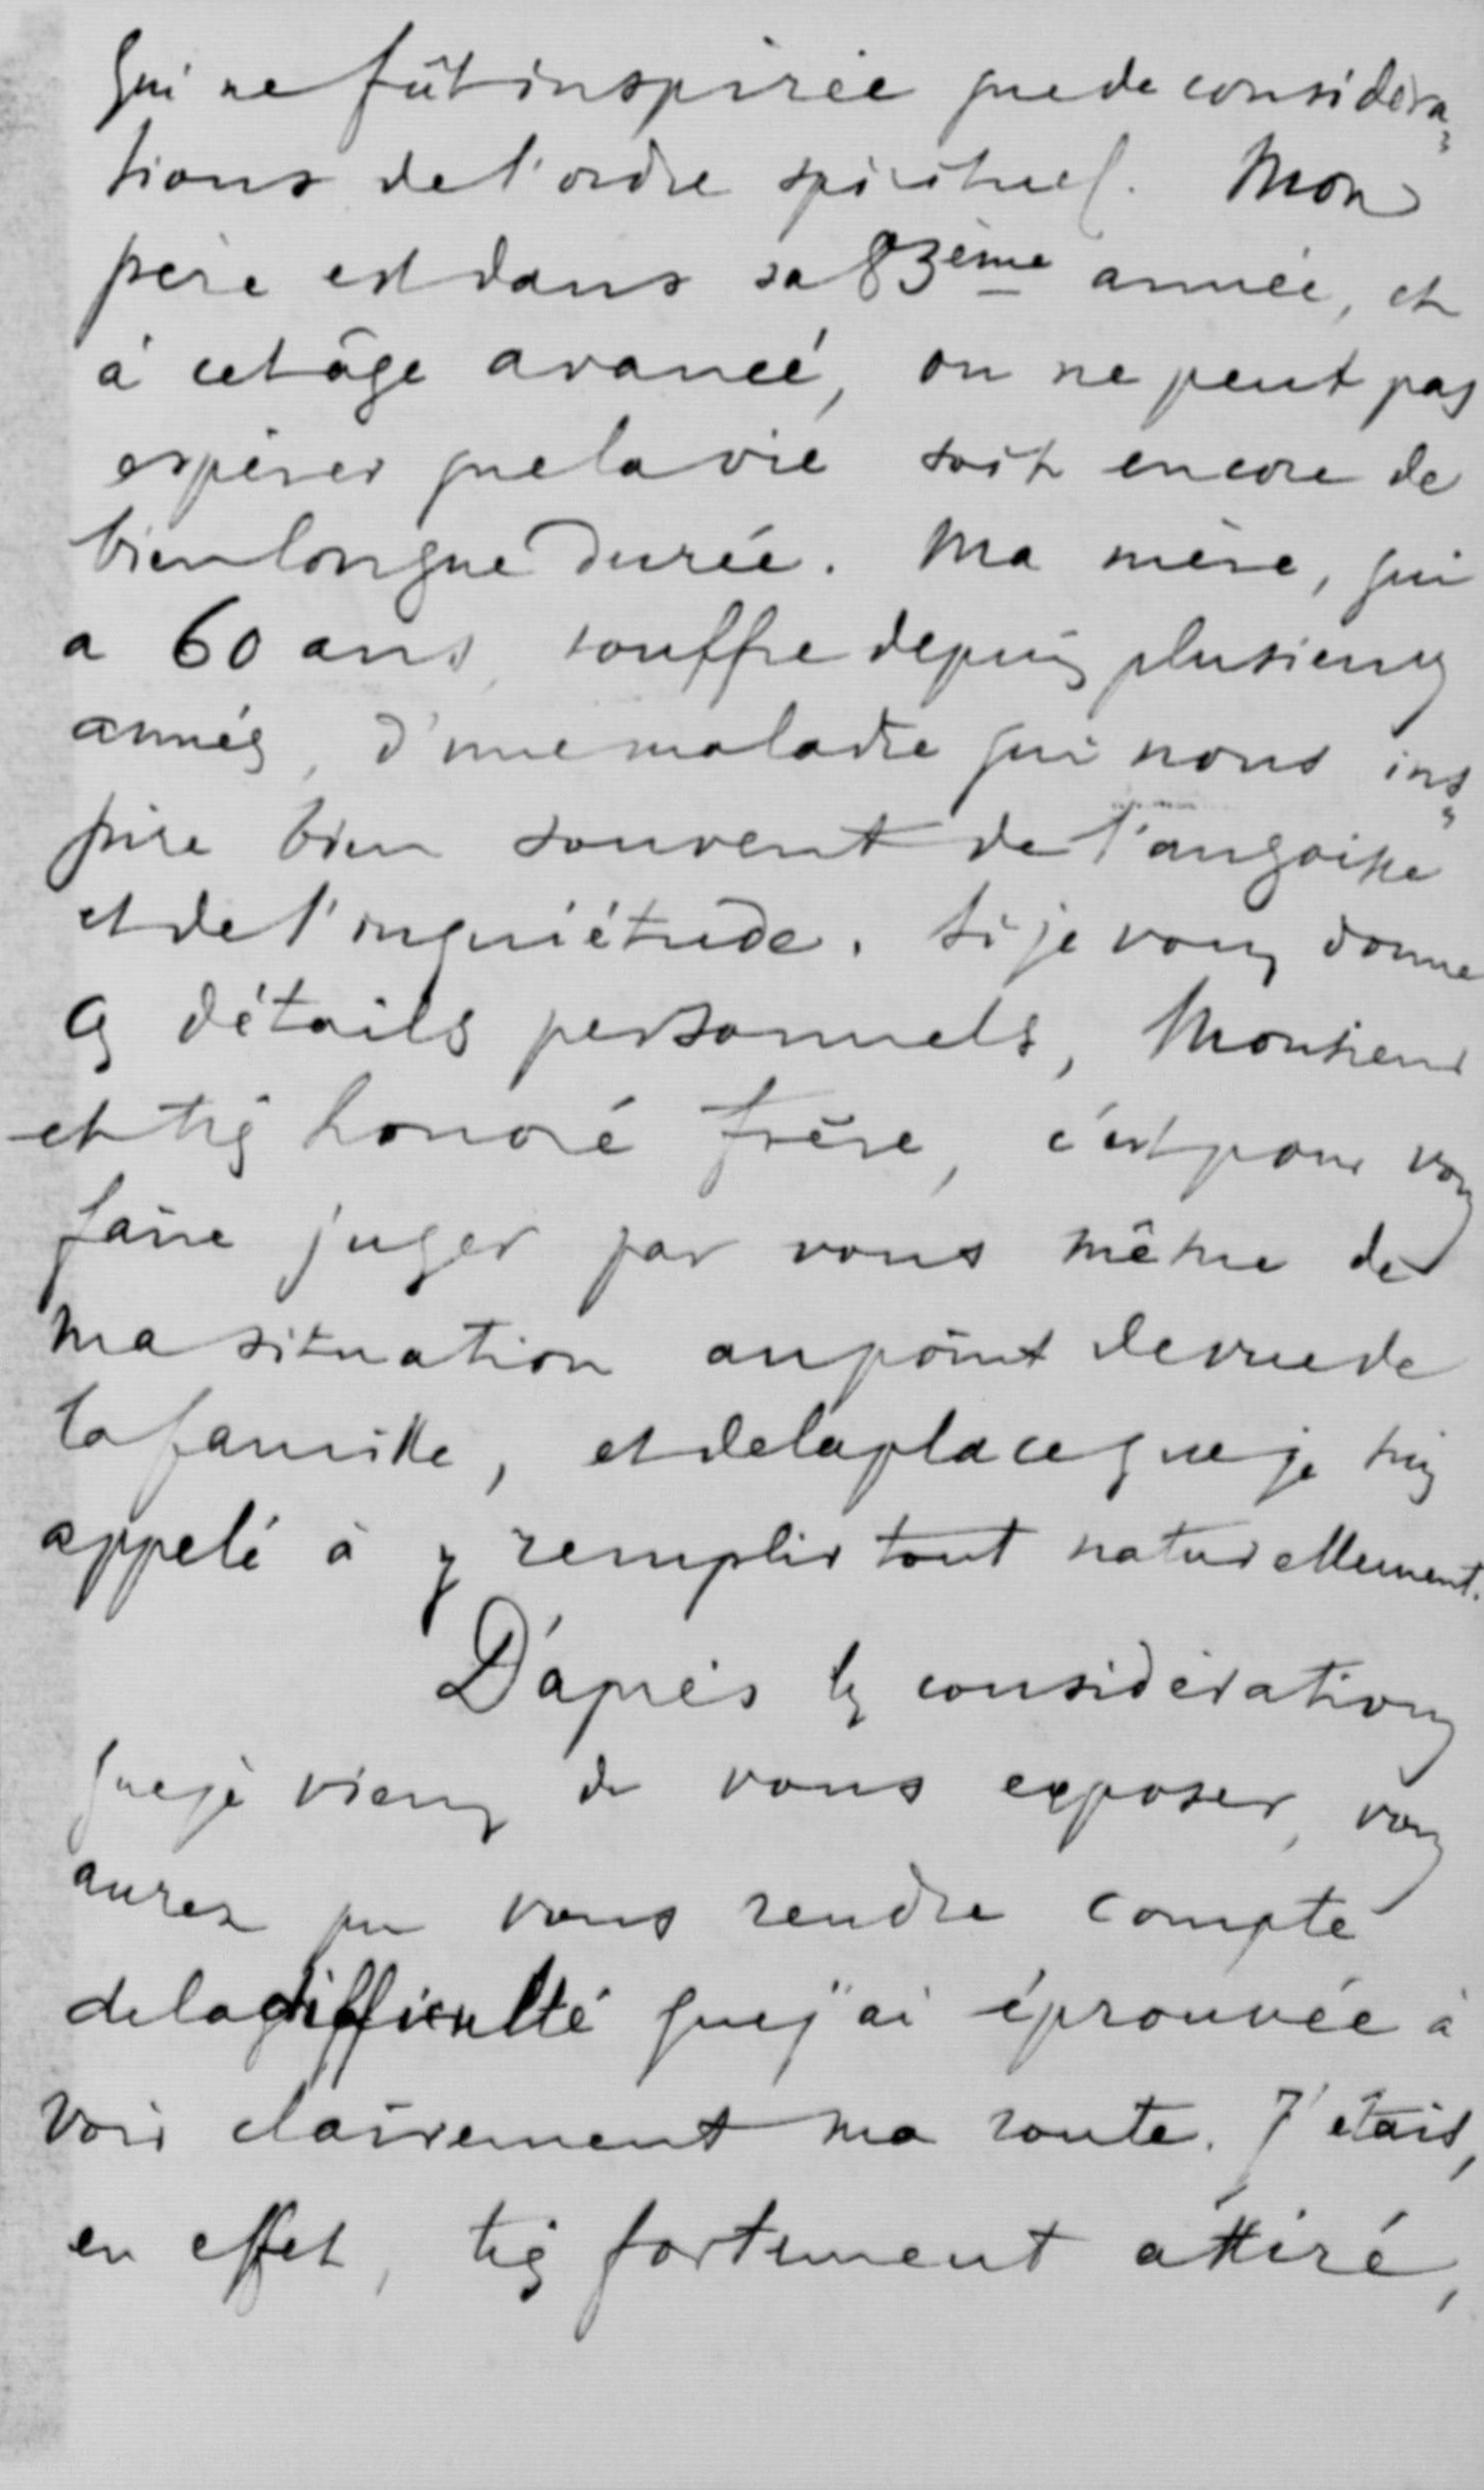 qui ne fût inspirée que de considéra=
tions de l'ordre spirituel. Mon
père est dans sa 83ème année, et
à cet âge avancé, on ne peut pas
espérer que la vie soit encore de
bien longue durée. Ma mère, qui
a 60 ans, souffre depuis plusieurs
années, d'une maladie qui nous ins=
pire bien souvent de l'angoisse
et de l'inquiétude. Si je vous donne
ces détails personnels, Monsieur
et très honoré frère, c'est pour vous
faire juger par vous même de
ma situation au point de vue de
la famille, et de la place que je suis
appelé à y remplir tout naturellement.
D'après les considérations
que je viens de vous exposer, vous
aurez pu vous rendre compte
de la difficulté que j'ai éprouvée à
voir clairement ma route. J'étais,
en effet, très fortement attiré,